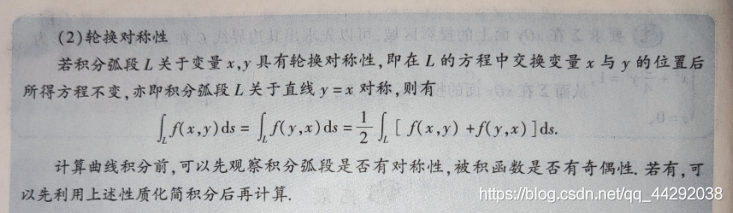 (2)轮换对称性
若积分弧段 L 关于变量 x,y 具有轮换对称性,即在 L 的方程中交换变量 x 与 y 的位置后
所得方程不变,亦即积分弧段 L 关于直线 y=x 对称,则有
∫_L f(x,y)ds = ∫_L f(y,x)ds = 1/2 ∫_L [f(x,y)+f(y,x)]ds.
计算曲线积分前,可以先观察积分弧段是否有对称性,被积函数是否有奇偶性. 若有,可
以先利用上述性质化简积分后再计算.
https://blog.csdn.net/qq_44292038